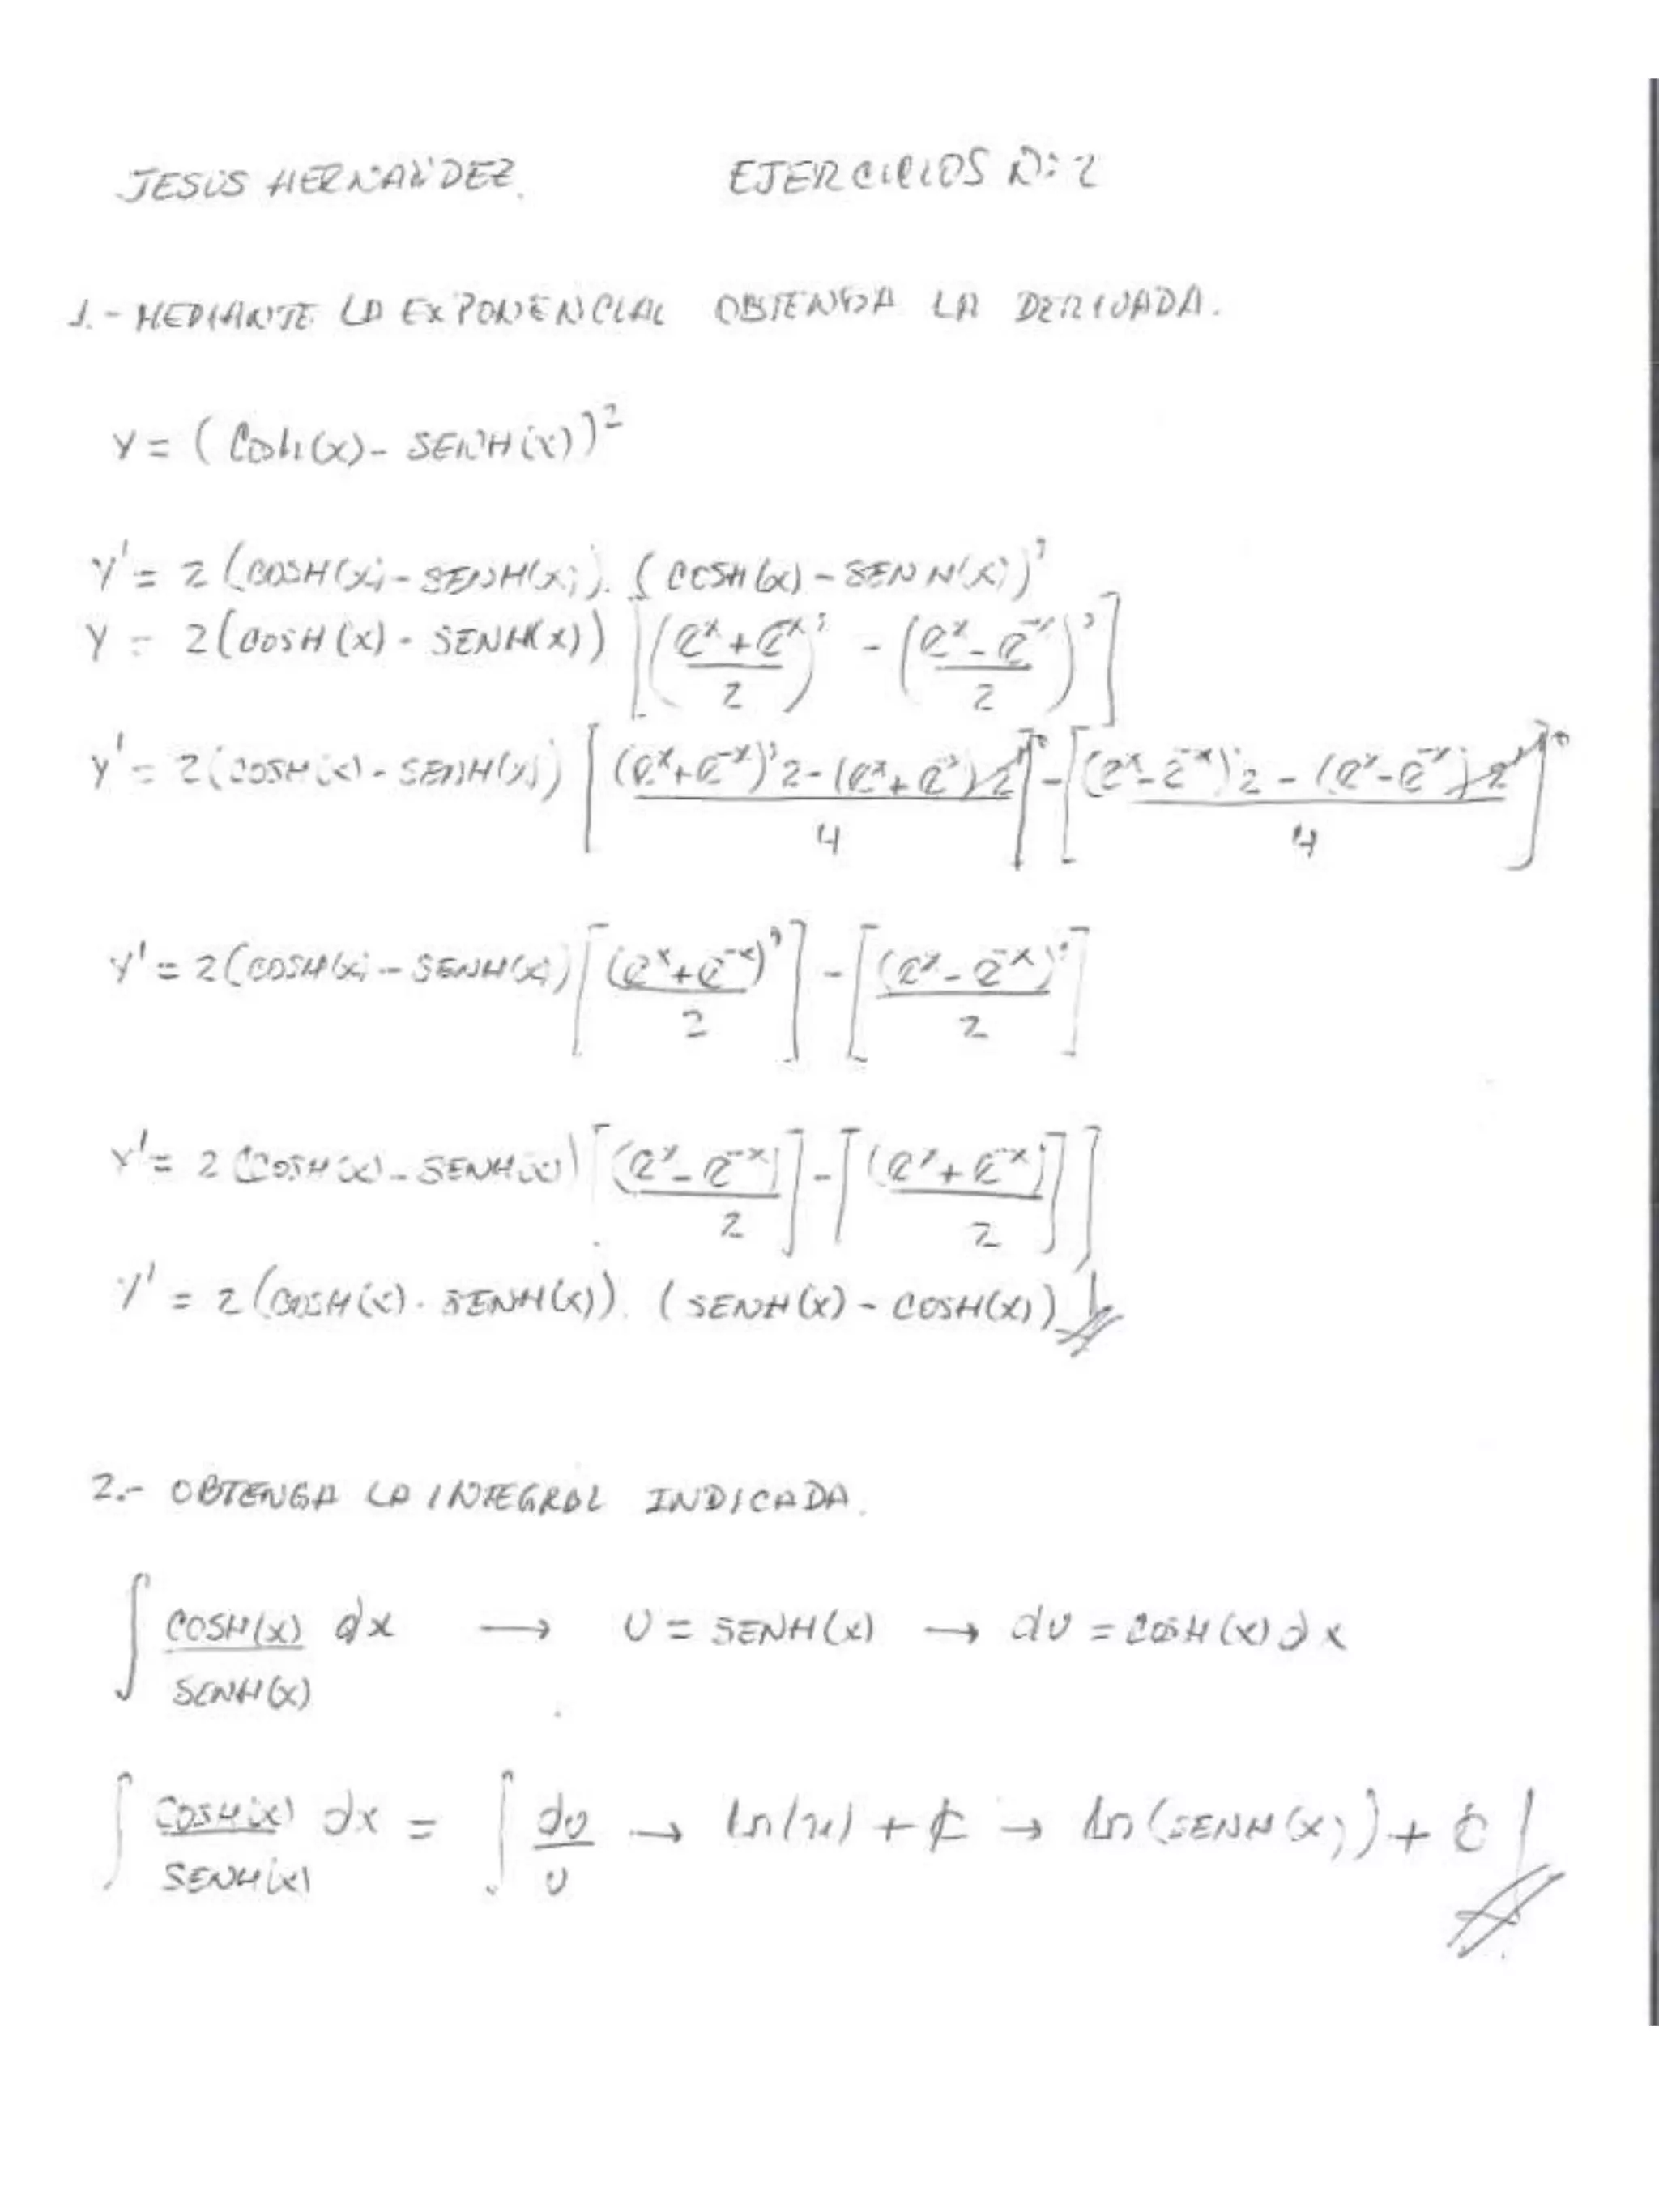 JESUS HERNANDEZ. EJERCICIOS N: 2
1.- MEDIANTE LA EXPONENCIAL OBTENGA LA DERIVADA.
Y = ( Cosh(x) - SENH(x))²
Y' = 2 (COSH(x) - SENH(x)). (COSH(x) - SENH(x))'
Y = 2(COSH(x) - SENH(x)) [((e^x + e^x)/2)' - ((e^x - e^-x)/2)']
Y' = 2(COSH(x) - SENH(x)) [((e^x + e^-x)'2 - (e^x + e^-x)2')/4]° - [((e^x - e^-x)'2 - (e^x - e^-x)2')/4]°
Y' = 2(COSH(x) - SENH(x)) [(e^x + e^-x)'/2] - [(e^x - e^-x)'/2]
Y' = 2(COSH(x) - SENH(x)) [(e^x - e^-x)/2] - [(e^x + e^-x)/2]]
Y' = 2(COSH(x) - SENH(x)). (SENH(x) - COSH(x))
2.- OBTENGA LA INTEGRAL INDICADA.
∫ COSH(x)/SENH(x) dx → U = SENH(x) → du = COSH(x)dx
∫ COSH(x)/SENH(x) dx = ∫ du/U → ln(u) + C → ln(SENH(x)) + C